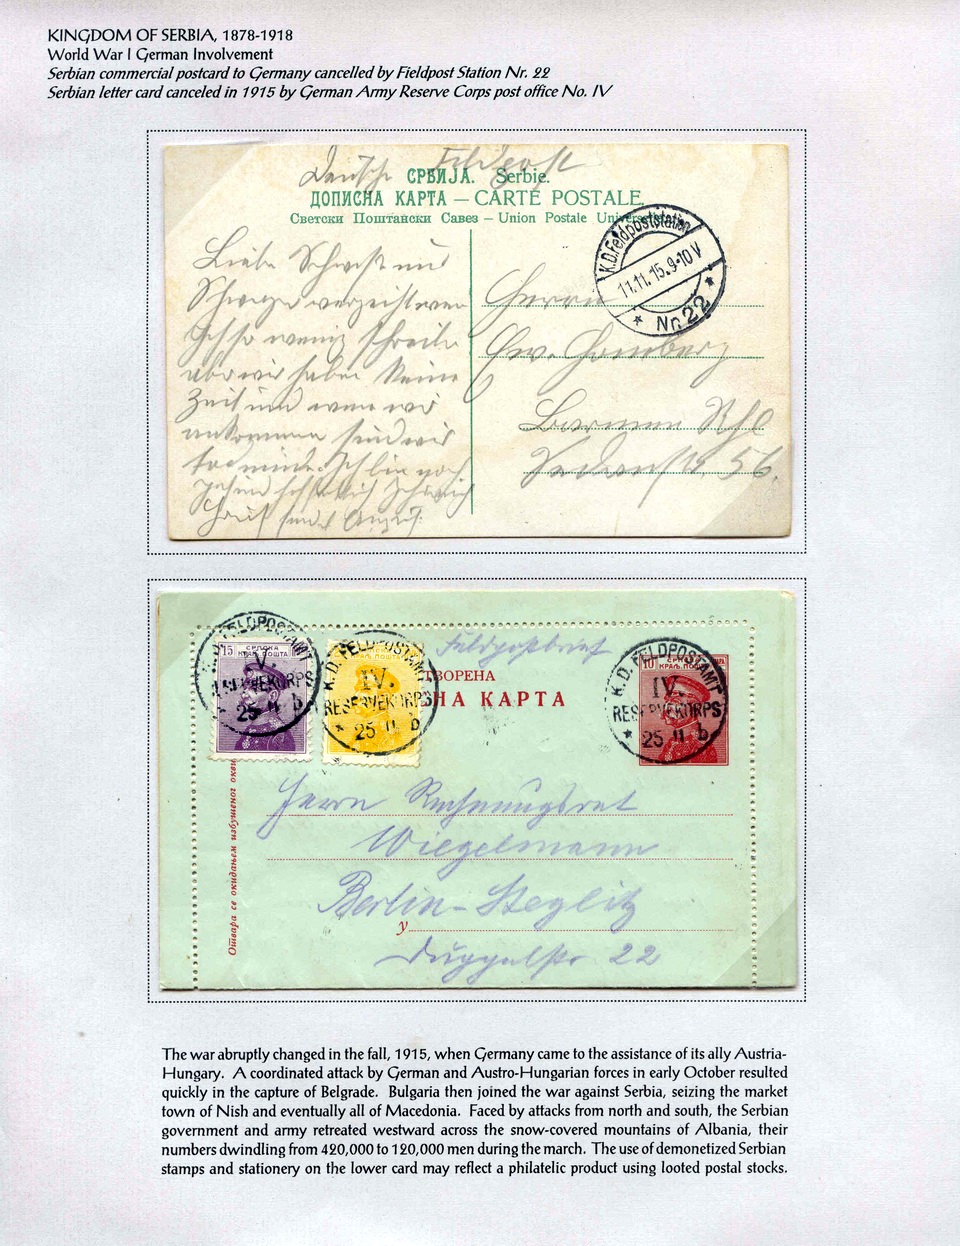 KINGDOM OF SERBIA, 1878-1918
World War I German Involvement
Serbian commercial postcard to Germany cancelled by Fieldpost Station Nr. 22
Serbian letter card canceled in 1915 by German Army Reserve Corps post office No. IV
Feldpost
СРБИЈА. Serbie.
ДОПИСНА КАРТА — CARTE POSTALE.
Светски Поштански Савез — Union Postale Universelle
K.D. Feldpoststation
11.11.15. 9-10 V
* Nr. 22 *
Liebe Schwester und
wenig schreiben
aber wir haben keine
Zeit und wenn wir
ankommen sind wir
Herrn
Ew. Homberg
Barmen Rhl
56.
K.D. FELDPOSTAMT
IV.
RESERVEKORPS
* 25 11 b
15 СРПСКА
КРАЉ. ПОШТА
K.D. FELDPOSTAMT
IV.
RESERVEKORPS
* 25 11 b
Feldpostbrief
ТВОРЕНА
НА КАРТА
10 СРПСКА
КРАЉ. ПОШТА
K.D. FELDPOSTAMT
IV.
RESERVEKORPS
* 25 11 b
Отвара се окидањем избушеног окви
Herrn Rechnungsrat
Wiegelmann
Berlin-Steglitz
У
Düppelstr 22
The war abruptly changed in the fall, 1915, when Germany came to the assistance of its ally Austria-
Hungary. A coordinated attack by German and Austro-Hungarian forces in early October resulted
quickly in the capture of Belgrade. Bulgaria then joined the war against Serbia, seizing the market
town of Nish and eventually all of Macedonia. Faced by attacks from north and south, the Serbian
government and army retreated westward across the snow-covered mountains of Albania, their
numbers dwindling from 420,000 to 120,000 men during the march. The use of demonetized Serbian
stamps and stationery on the lower card may reflect a philatelic product using looted postal stocks.